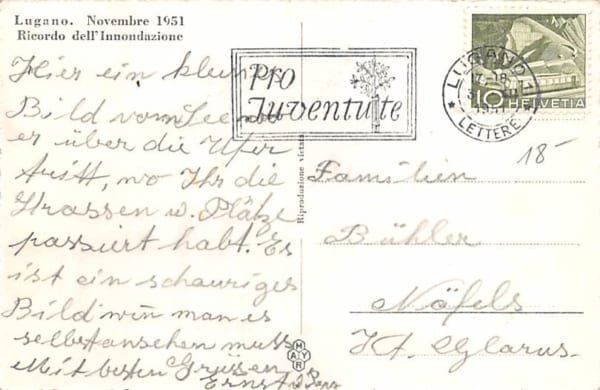 Lugano. Novembre 1951
Ricordo dell'Innondazione
Hier ein kleines
Bild vom See wo
er über die Ufer
tritt, wo Ihr die
Strassen u. Plätze
passiert habt. Es
ist ein schauriges
Bild wen man es
selbst ansehen muss
Mit besten Grüssen
Ernst u.
Pro
Juventute
LUGANO 1
LETTERE
10 HELVETIA
18-
Riproduzione vietata
MAYR
Familien
Bühler
Näfels
Kt. Glarus.